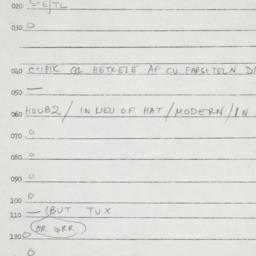 020 SHETL
030 0
040 CHIPIK QZ HETKELE AF CU FARSHTELN D
050 —
060 HOUB2/ IN LIEU OF HAT/MODERN/IN
070 0
080 0
090 0
100 0
110 — (BUT TUX
120 0 OR QRR
0